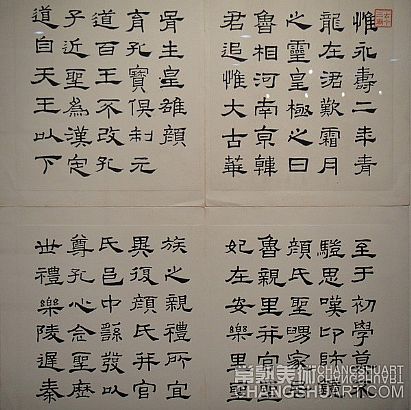 惟永壽二年青
龍在涒歎霜月
之靈皇極之日
魯相河南京韓
君追惟大古華
胥生皇雄顏
育孔寶俱制元
道百王不改孔
子近聖為漢定
道自天王以下
至于初學莫不
駿思嘆卬師鏡
顏氏聖舅家居
魯親里并官聖
妃在安樂里聖
族之親禮所宜
異復顏氏并官
氏邑中繇發以
尊孔心念聖歷
世禮樂陵遲秦
常熟美術
CHANGSHUART